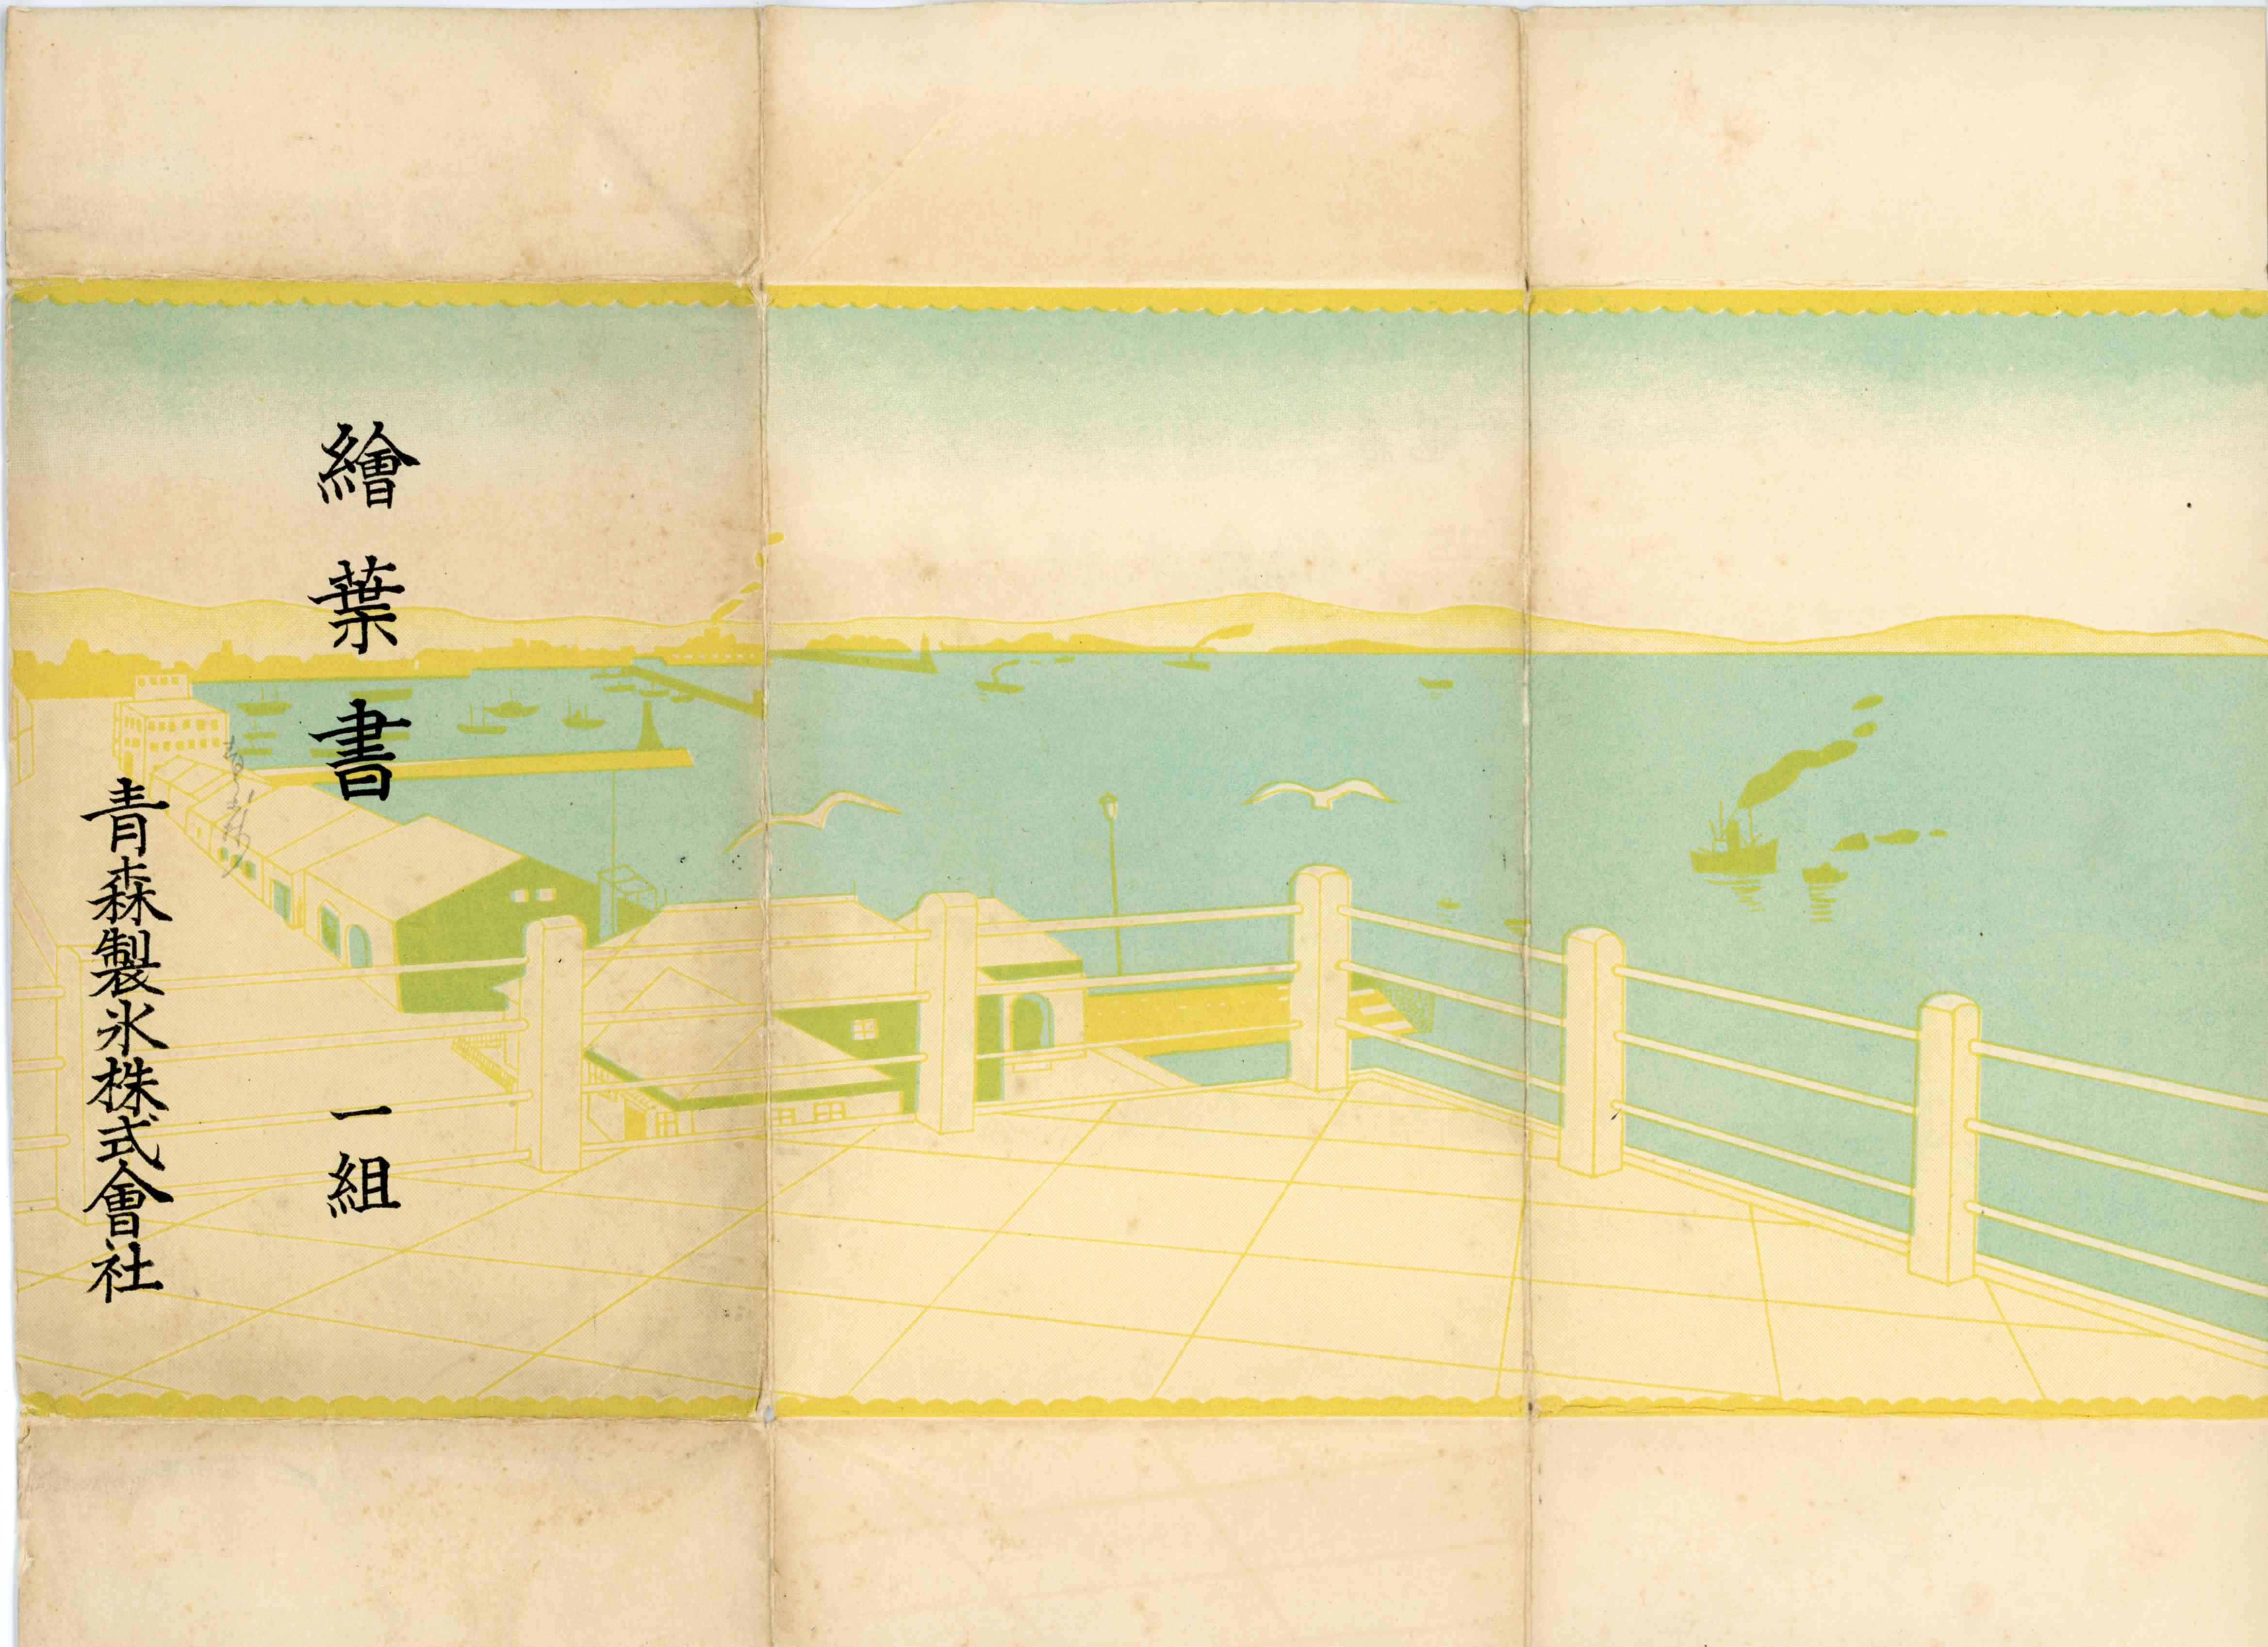 繪葉書 一組
青森製氷株式會社